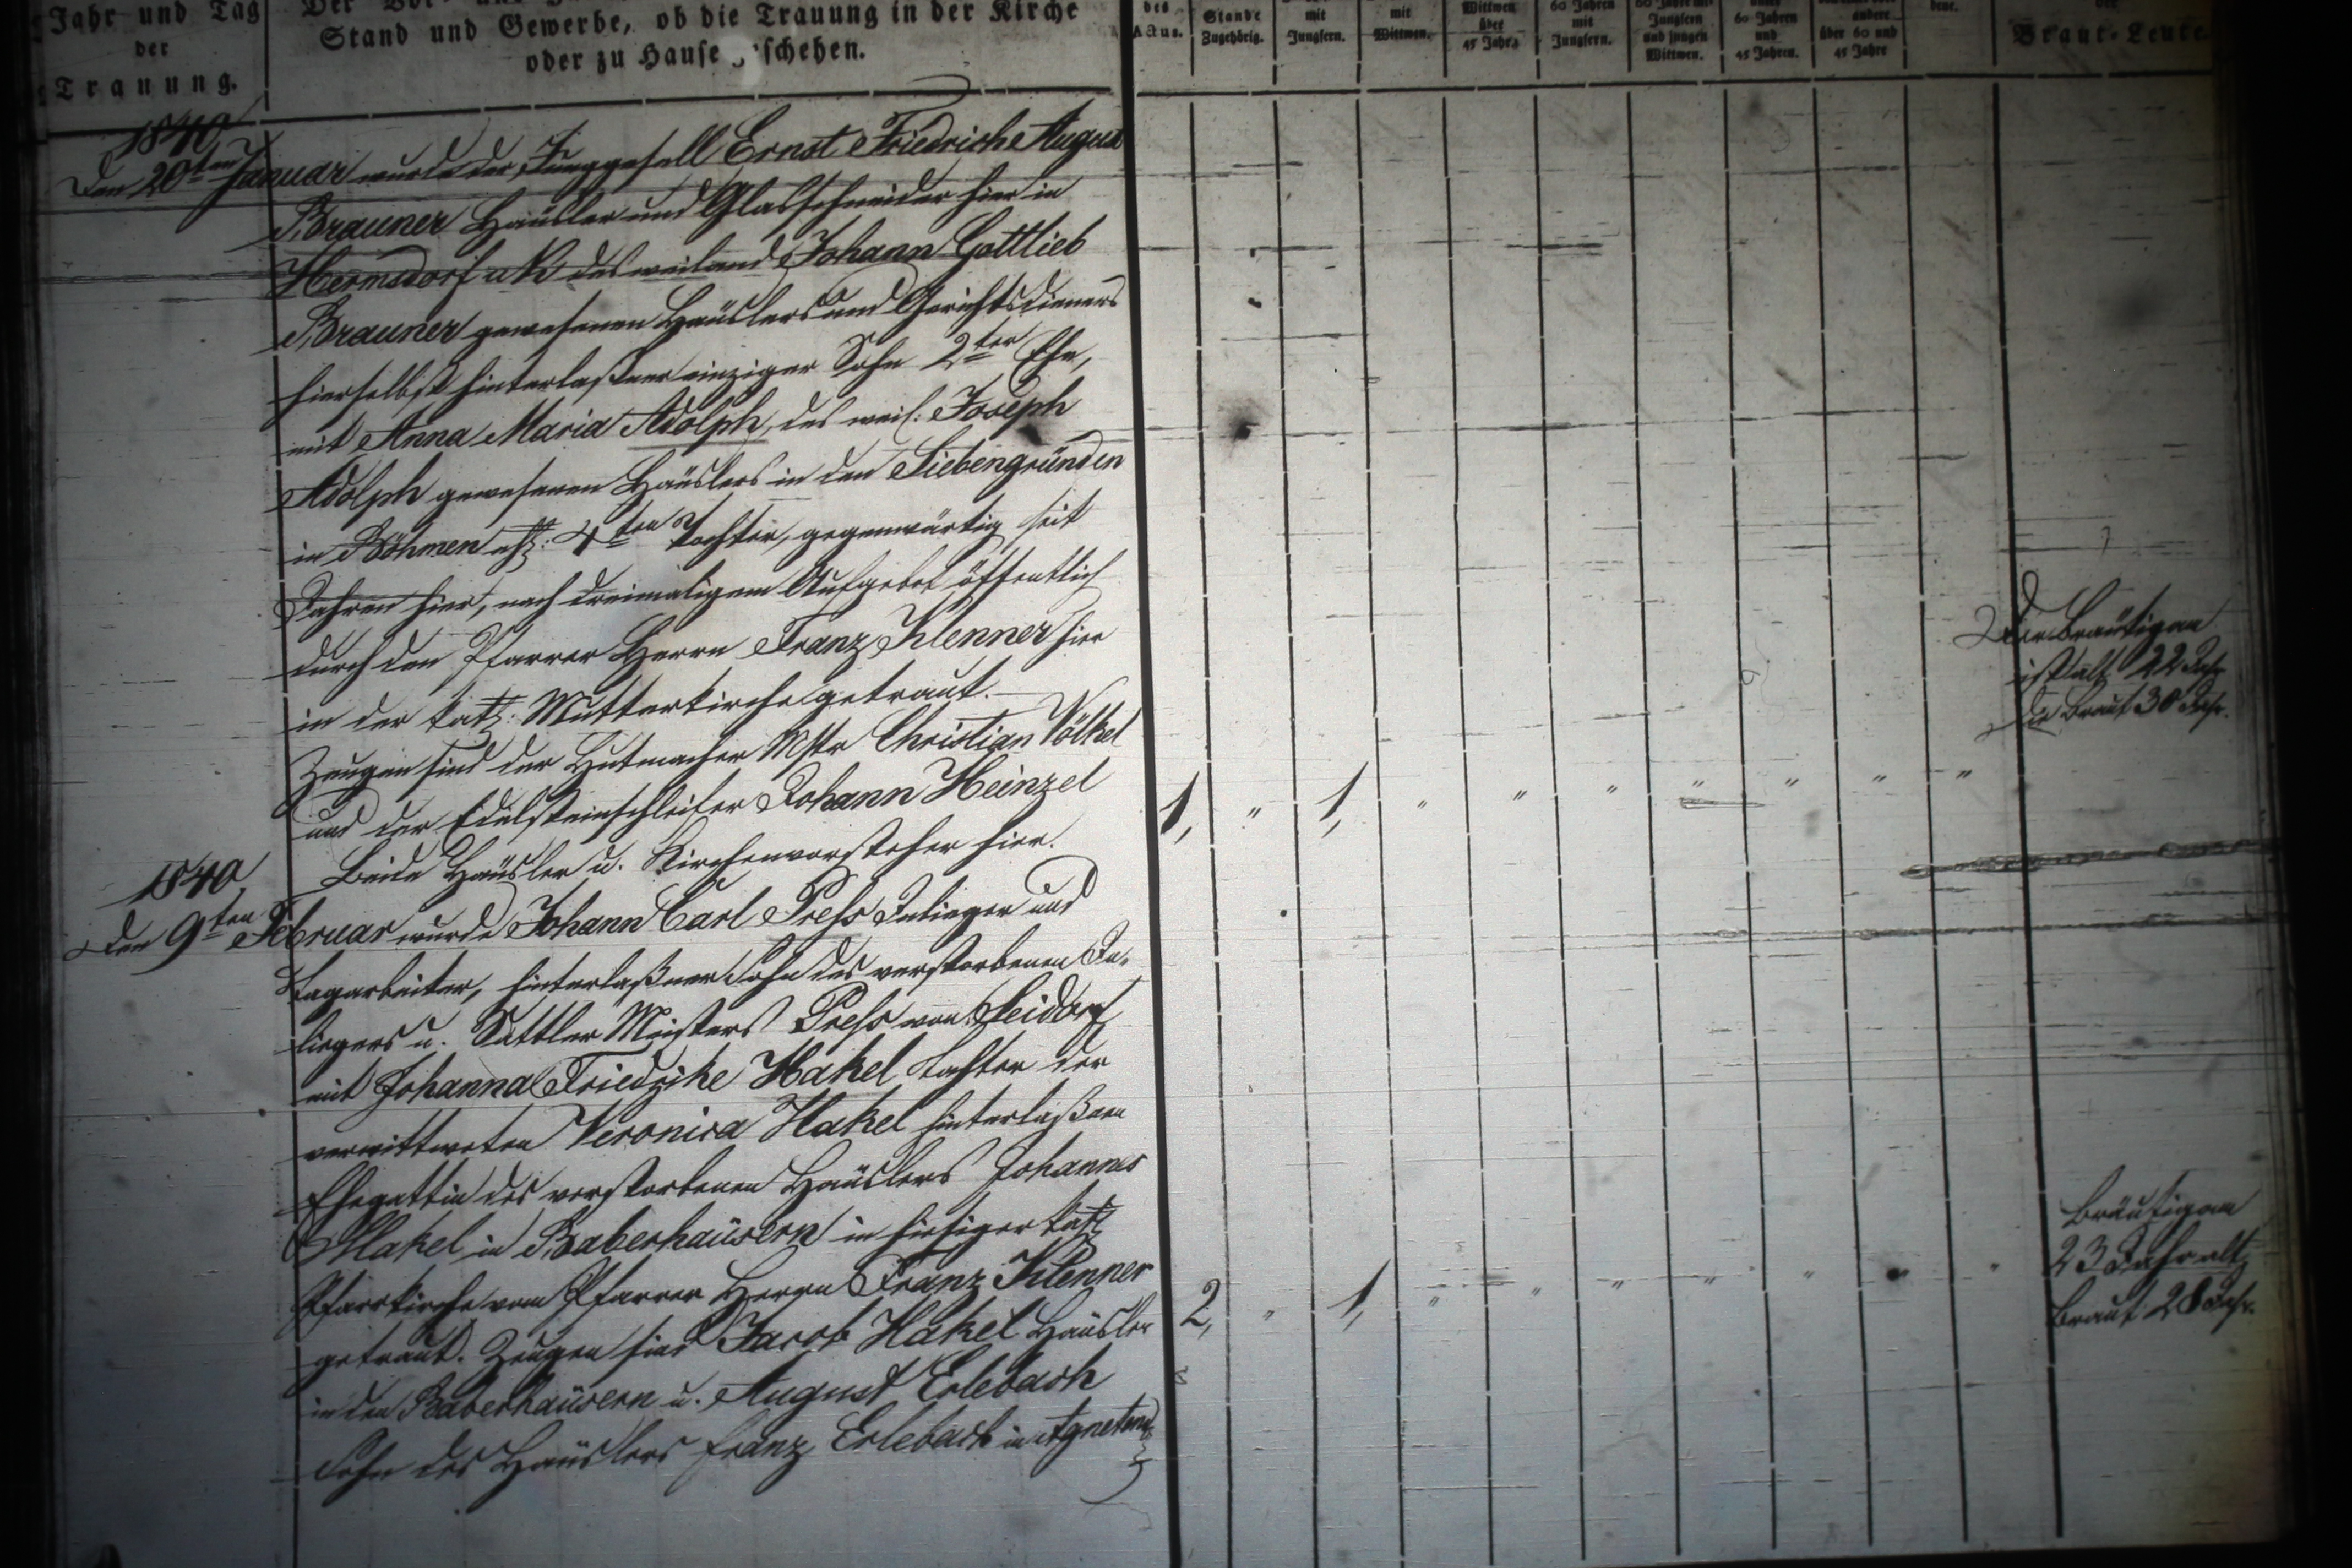 Jahr und Tag
der
Trauung.
Stand und Gewerbe, ob die Trauung in der Kirche
oder zu Hause geschehen.
des
Actus.
Stande
Zugehörig.
mit
Jungfern.
mit
Wittwen.
Wittwen
über
45 Jahr
60 Jahren
mit
Jungfern.
Jungfern
und jungen
Wittwen.
60 Jahren
und
45 Jahren.
andere
über 60 und
45 Jahre
der
Braut-Leute.
1840
Den 20ten Januar wurde der Junggesell Ernst Friedrich August
Brauner Häusler und Glasschneider hier in
Hermsdorf u/K des weiland Johann Gottlieb
Brauner gewesenen Häuslers und Gerichtsdieners
hierselbst hinterlaßner einziger Sohn 2ter Ehe,
mit Anna Maria Adolph, des weil: Joseph
Adolph gewesenen Häuslers in den Siebengründen
in Böhmen ehl: 4ten Tochter, gegenwärtig seit
Jahren hier, nach dreimaligem Aufgebot öffentlich
durch den Pfarrer Herrn Franz Klenner hier
in der kath: Mutterkirche getraut.
Zeugen sind der Hutmacher Mstr Christian Völkel
und der Edelsteinschleifer Johann Heinzel
Beide Häusler u. Kirchenvorsteher hier.
1, " 1, " " " " " " "
Der Bräutigam
ist alt 22 Jahr
die Braut 30 Jahr.
1840
Den 9ten Februar wurde Johann Carl Preß Inlieger und
Tagarbeiter, hinterlaßner Sohn des verstorbenen In-
liegers u. Sattler Meisters Preß von Seidorf
mit Johanna Friedrike Hakel Tochter der
verwittweten Veronica Hakel hinterlaßnen
Ehegattin des verstorbenen Häuslers Johannes
Hakel in Baberhäusern in hiesiger kath
Pfarrkirche vom Pfarrer Herrn Franz Klenner
getraut. Zeugen sind Jacob Hakel Häusler
in den Baberhäusern u. August Erlebach
Sohn des Häuslers Franz Erlebach in Agnetend
2, " 1, " " " " " " "
Bräutigam
23 Jahr alt
Braut 28 Jahr.